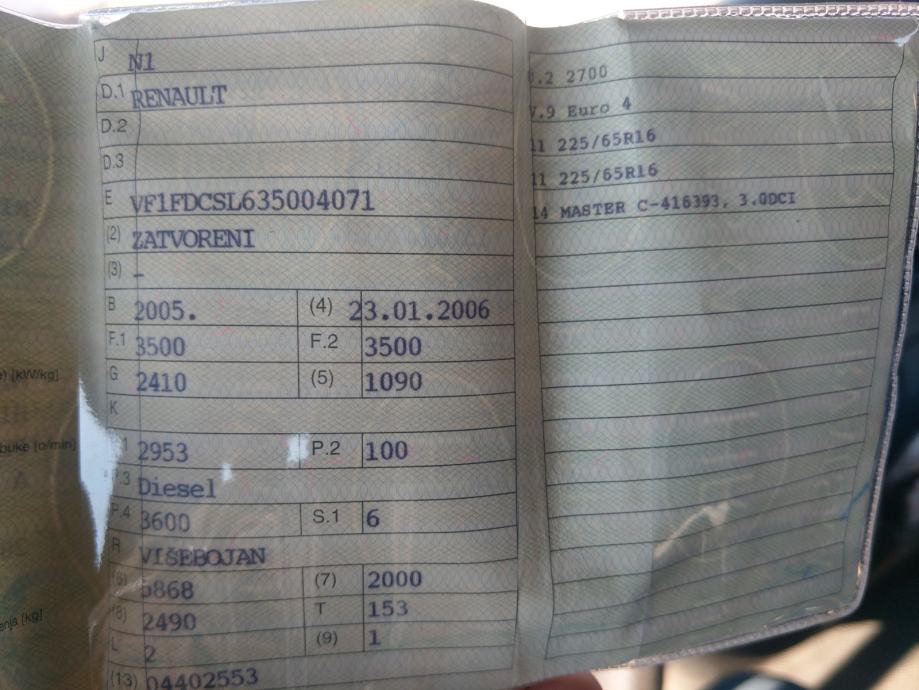 J N1
D.1 RENAULT
D.2
D.3
E VF1FDCSL635004071
(2) ZATVORENI
(3) -
B 2005. (4) 23.01.2006
F.1 3500 F.2 3500
G 2410 (5) 1090
K
2953 P.2 100
P.3 Diesel
P.4 3600 S.1 6
R VIŠEBOJAN
(6) 5868 (7) 2000
(8) 2490 T 153
L 2 (9) 1
(13) 04402553
.2 2700
V.9 Euro 4
11 225/65R16
11 225/65R16
14 MASTER C-416393, 3.0DCI
[kW/kg]
buke [o/min]
enja [kg]